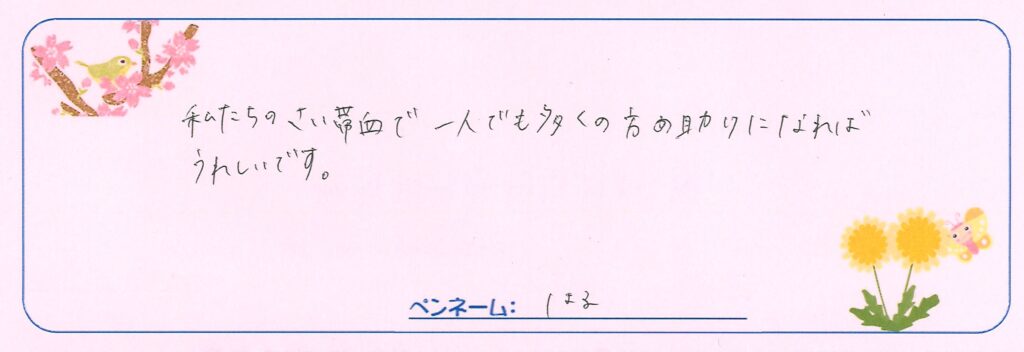 私たちのさい帯血で 一人でも多くの方の助けになれば
うれしいです。
ペンネーム: はる